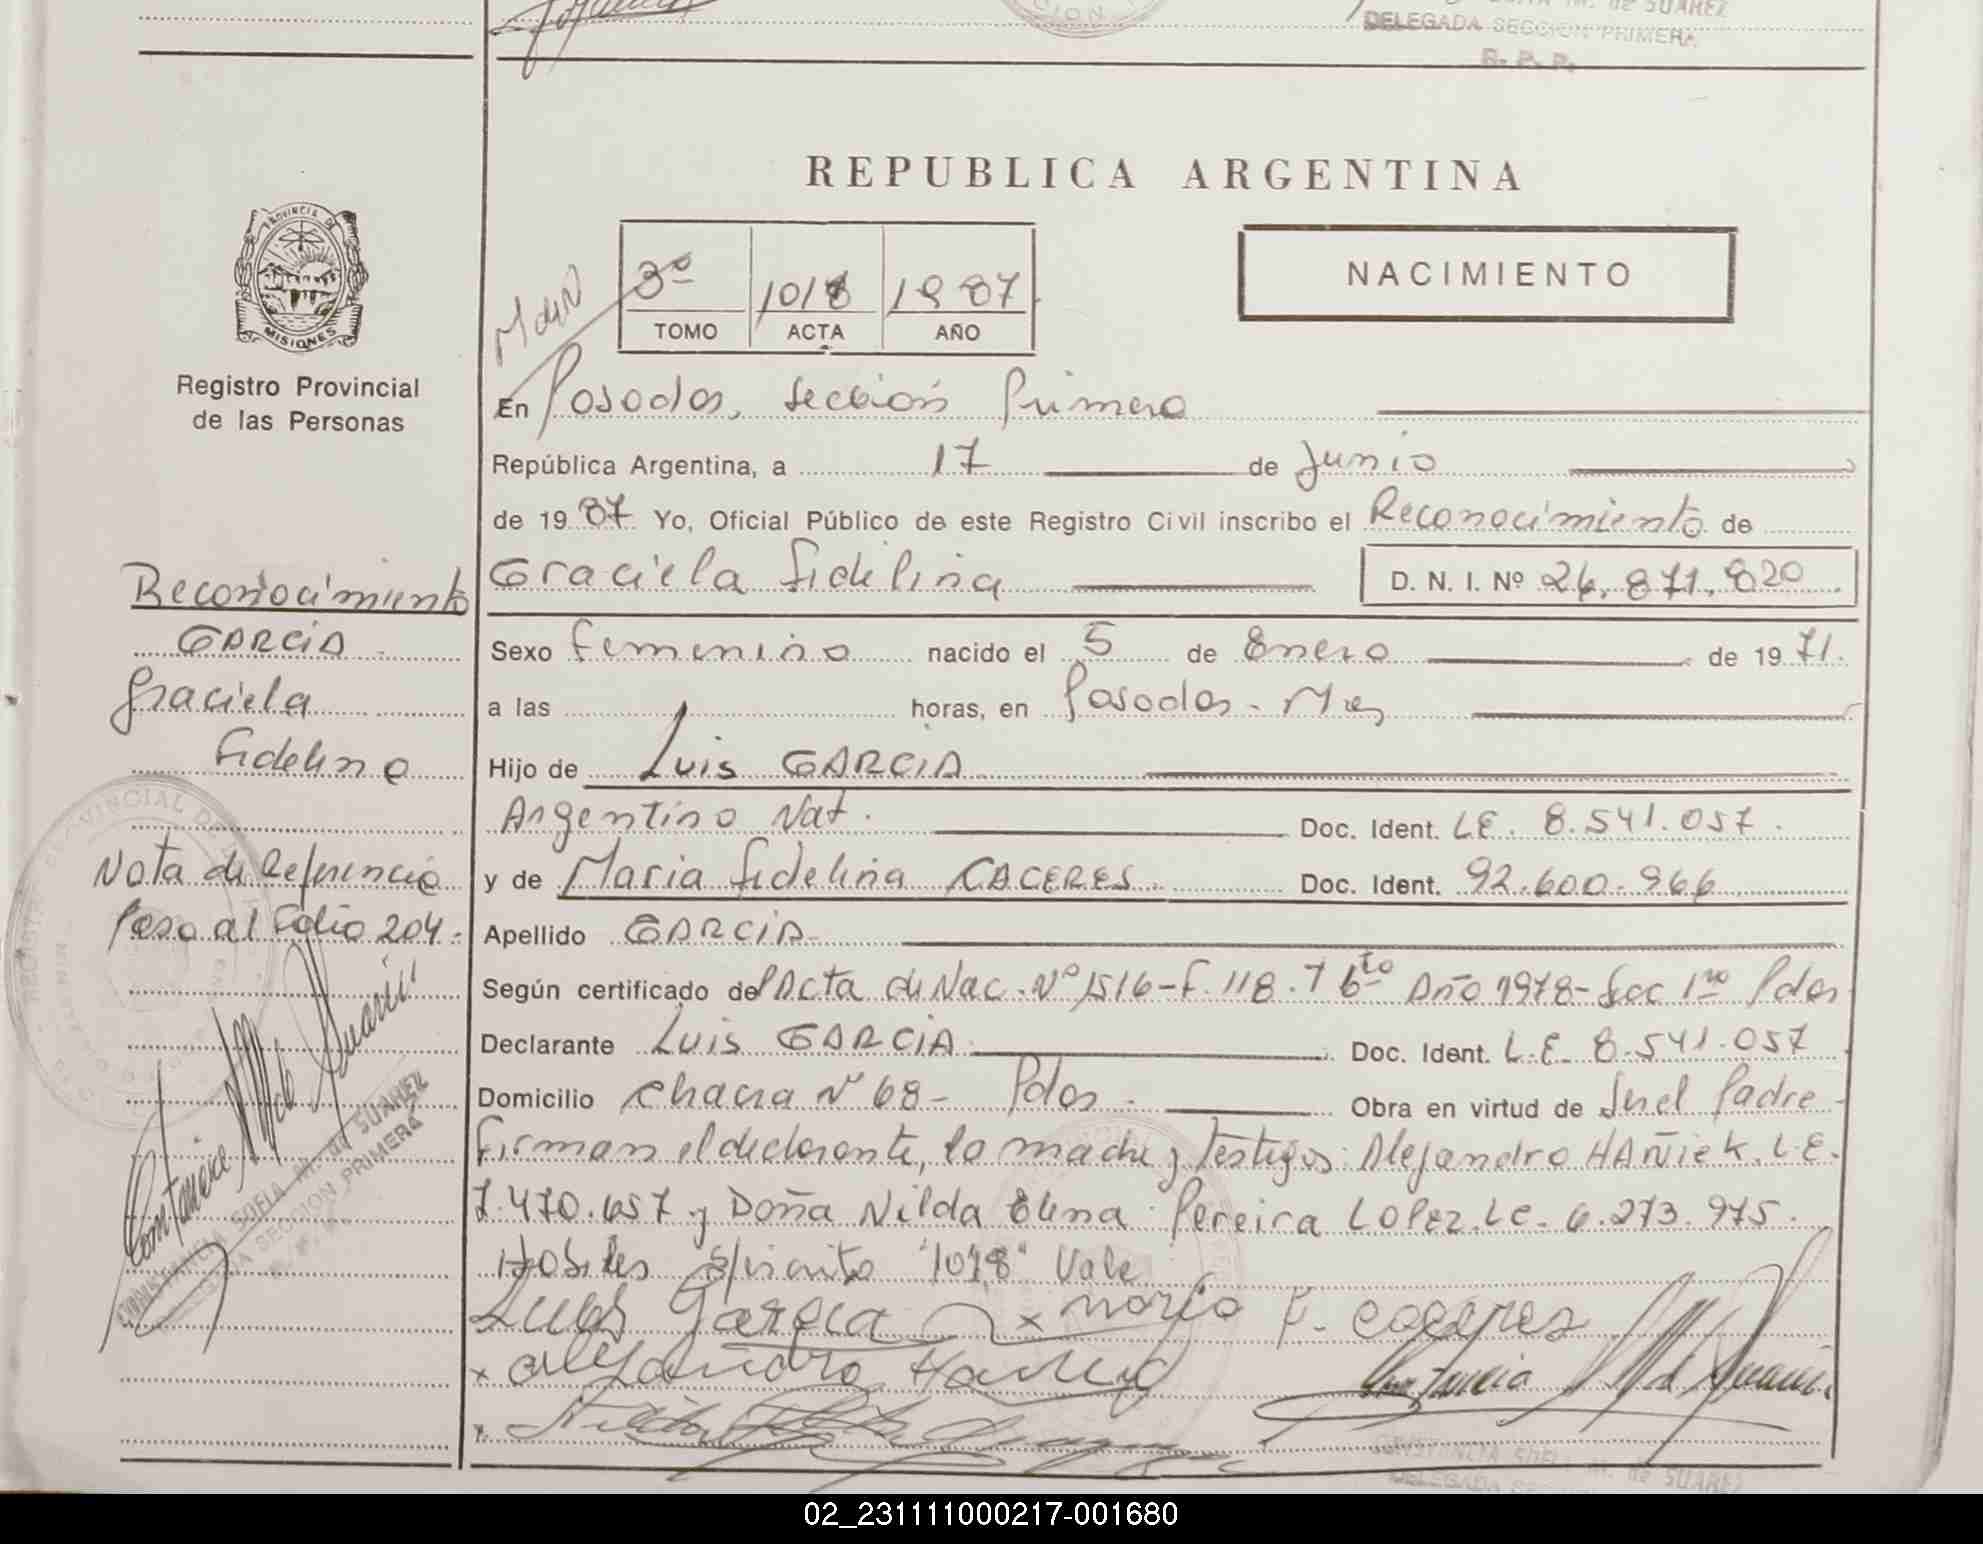 M. de SUAREZ
DELEGADA SECCION PRIMERA
R. P. P.
REPUBLICA ARGENTINA
PROVINCIA DE
MISIONES
Registro Provincial
de las Personas
3º 1018 1987
TOMO ACTA AÑO
NACIMIENTO
En Posadas, Sección Primera
República Argentina, a 17 de Junio
de 1987 Yo, Oficial Público de este Registro Civil inscribo el Reconocimiento de
Graciela Fidelina D. N. I. Nº 26.871.820
Sexo Femenino nacido el 5 de Enero de 1971.
a las horas, en Posadas - Mnes
Hijo de Luis GARCIA
Argentino Nat. Doc. Ident. L.E. 8.541.057.
y de Maria Fidelina CACERES. Doc. Ident. 92.600.966
Apellido GARCIA
Según certificado de Acta de Nac. Nº 1516-F. 118. T 6to Año 1978- Sec 1ra Pdas
Declarante Luis GARCIA. Doc. Ident. L.E. 8.541.057
Domicilio Chacra Nº 68- Pdas. Obra en virtud de Ser el Padre-
Firman el declarante, la madre y testigos: Alejandro HAÑIEK. L.E.
7.470.657 y Doña Nilda Elena Pereira LOPEZ. L.C. 6.273.975.
Hábiles s/escrito "1018" Vale
Luis Garcia x Maria F. Caceres
x Alejandro
Constancia M de Suarez
CONSTANCIA SOFIA M. de SUAREZ
DELEGADA
Reconocimiento
GARCIA
Graciela
Fidelina
Nota de Referencia
Pasa al Folio 204.
Constancia M de Suarez
CONSTANCIA SOFIA M. de SUAREZ
DELEGADA SECCION PRIMERA
R. P. P.
02_231111000217-001680